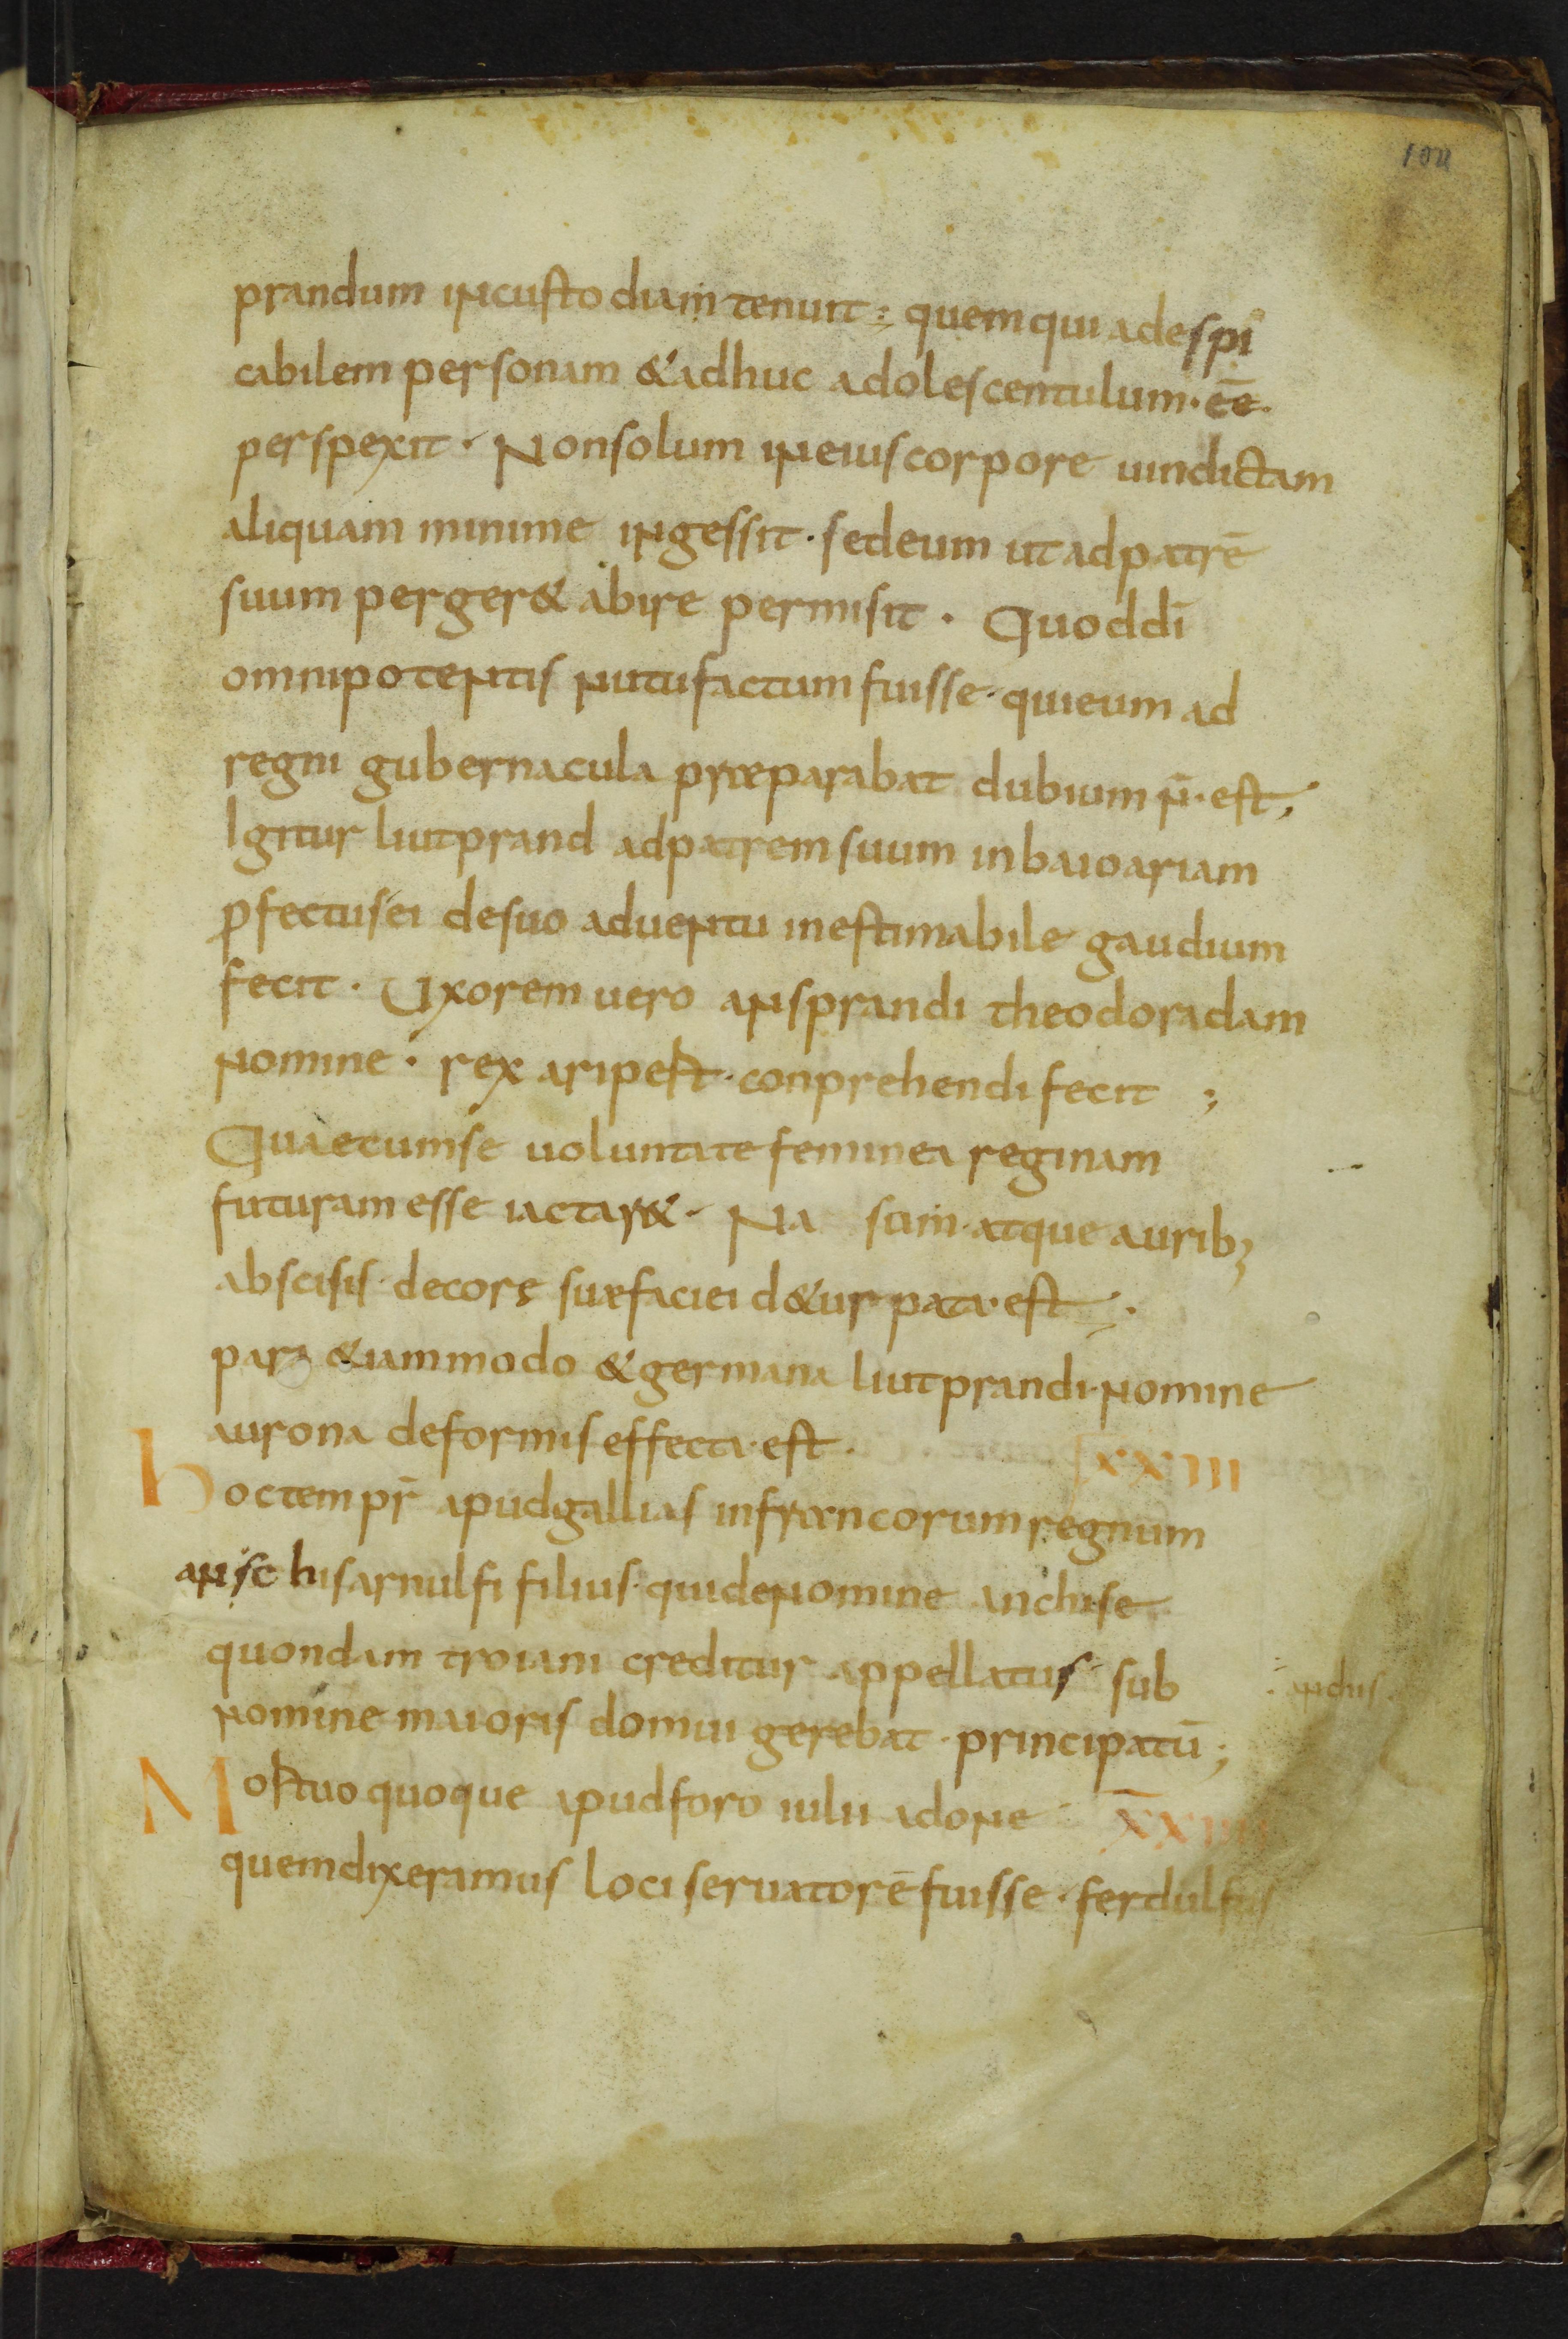 104
prandum incustodiam tenuit; quem quia despi
cabilem personam & adhuc adolescentulum · eē ·
perspexit · Non solum ineius corpore uindictam
aliquam minime ingessit · sed eum ut ad patrē
suum perger& abire permisit · Quod dī
omnipotentis nutu factum fuisse · qui eum ad
regni gubernacula præparabat dubium n̄ · est;
Igitur liutprand ad patrem suum in baioariam
ꝓfectus ei de suo aduentu inestimabile gaudium
fecit · Uxorem uero ansprandi theodoradam
nomine · rex aripert · conprehendi fecit ;
Quae cum se uoluntate feminea reginam
futuram esse iactar& · Na scim · atque aurib;
abscisis · decore suæ faciei d&urpata · est ;·
pari & iammodo & germana liutprandi · nomine
aurona deformis effecta · est · XXIII
Hoc tempr̄ apud gallias in francorum regnum
anschis arnulfi filius · qui de nomine anchise
quondam troiani creditur appellatus · sub anchis
nomine maioris domui gerebat · principatū;
Mostuo quoque apud foro iulii adone XXIIII
quem dixeramus loci seruatorē fuisse · ferdulfus